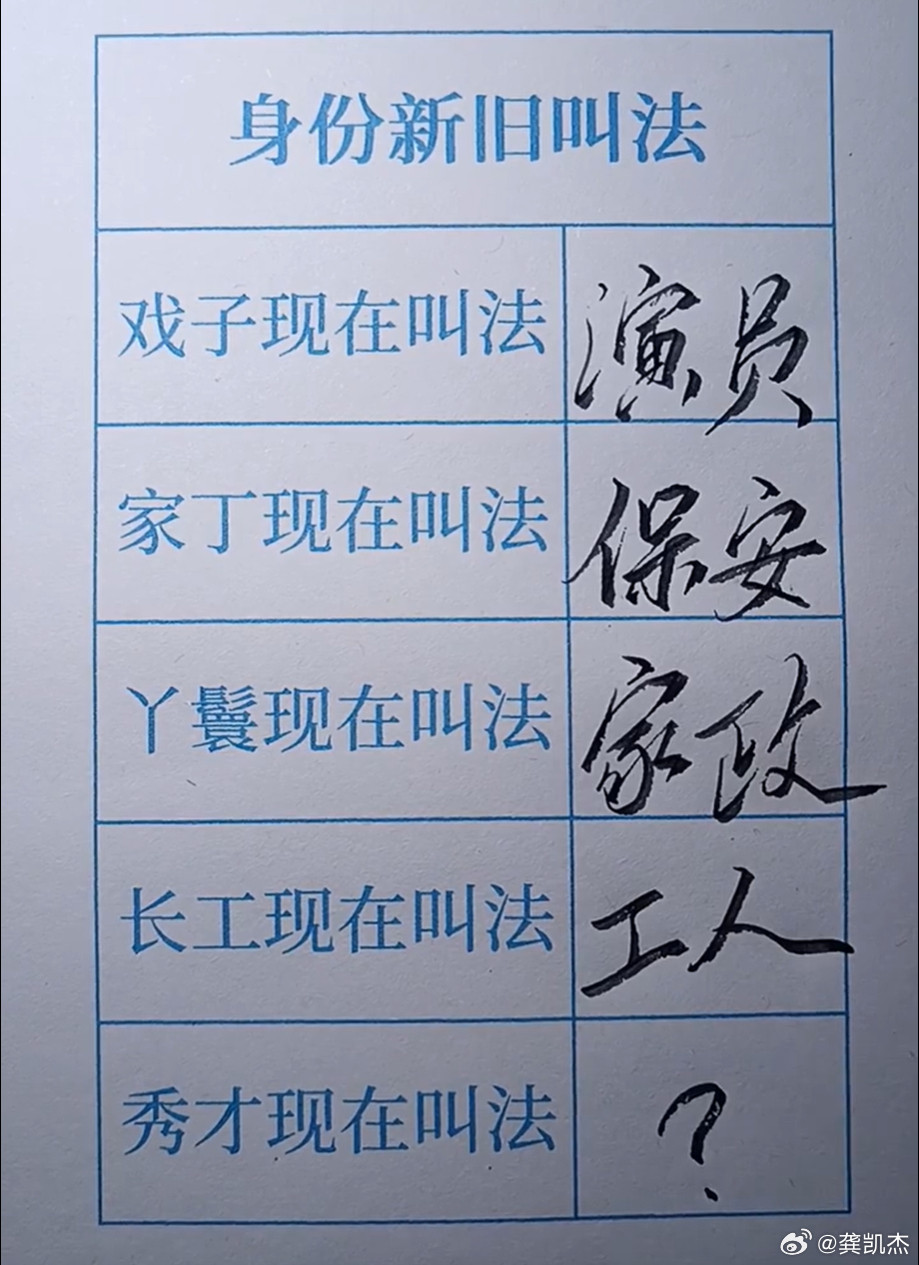 身份新旧叫法
戏子现在叫法 演员
家丁现在叫法 保安
丫鬟现在叫法 家政
长工现在叫法 工人
秀才现在叫法 ?
@龚凯杰